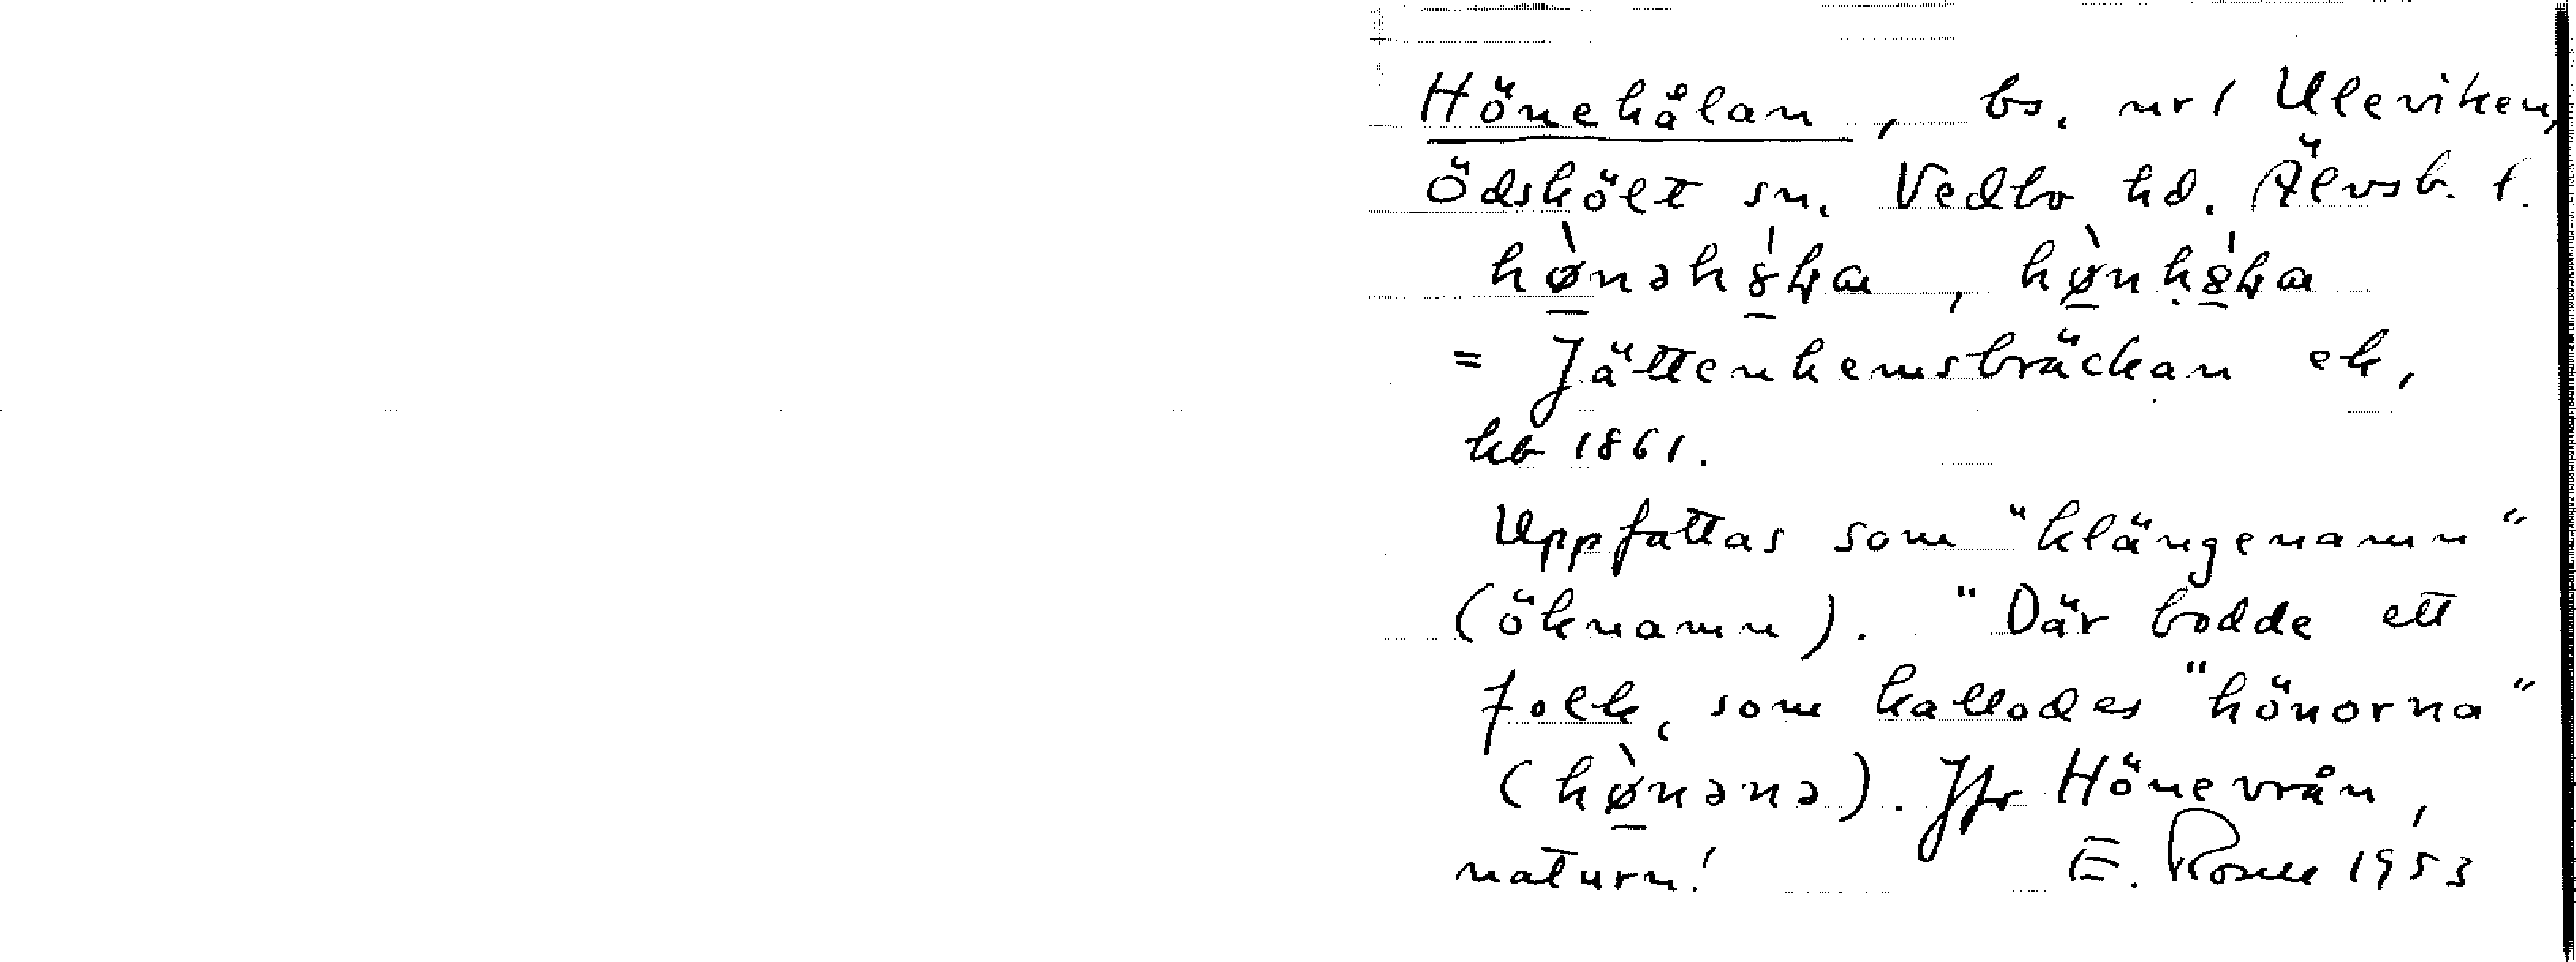 Hönehålan, bs. nr 1 Uleviken,
Ödskölt sn. Vedbo hd. Älvsb. l.
= Jättenhemsbräckan ek,
hb 1861.
Uppfattas som "klängenamn"
(öknamn). "Där bodde ett
folk, som kallades "hönorna"
(hø̀nənə). Jfr Hönevrån,
naturn! E. Rosell 1953